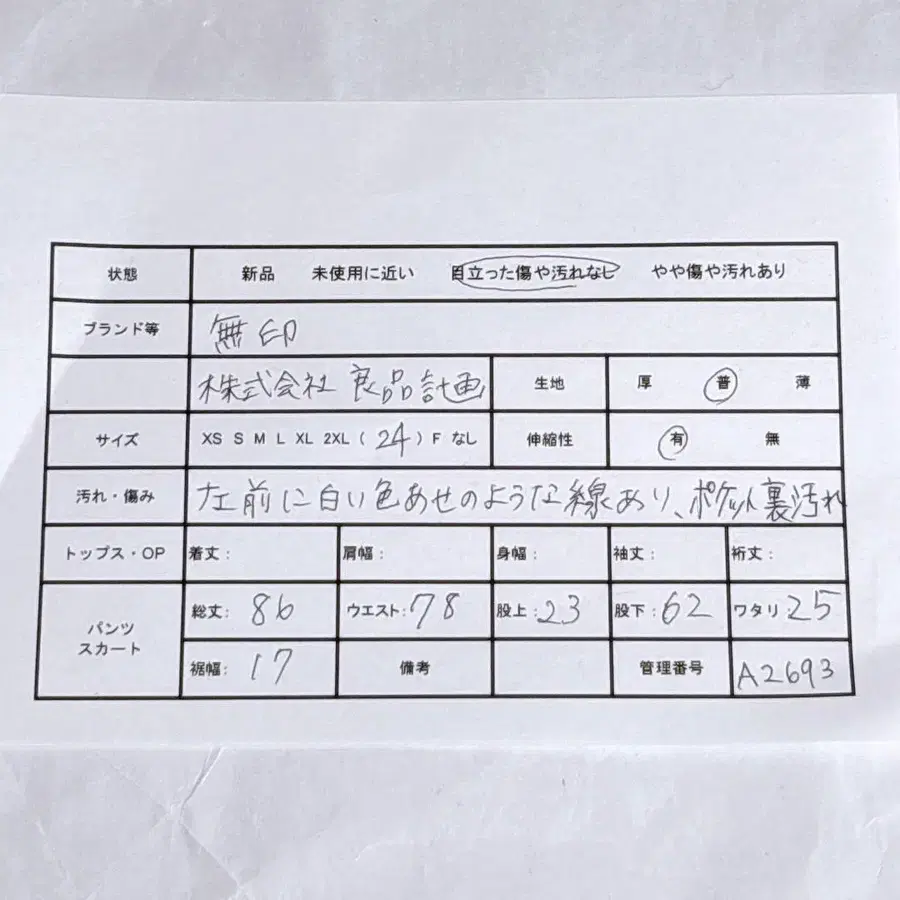 状態 新品 未使用に近い 目立った傷や汚れなし やや傷や汚れあり
ブランド等 無印
株式会社 良品計画 生地 厚 普 薄
サイズ XS S M L XL 2XL ( 24 ) F なし 伸縮性 有 無
汚れ・傷み 左前に白い色あせのような線あり、ポケット裏汚れ
トップス・OP 着丈: 肩幅: 身幅: 袖丈: 裄丈:
パンツ スカート 総丈: 86 ウエスト: 78 股上: 23 股下: 62 ワタリ: 25
裾幅: 17 備考 管理番号 A2693